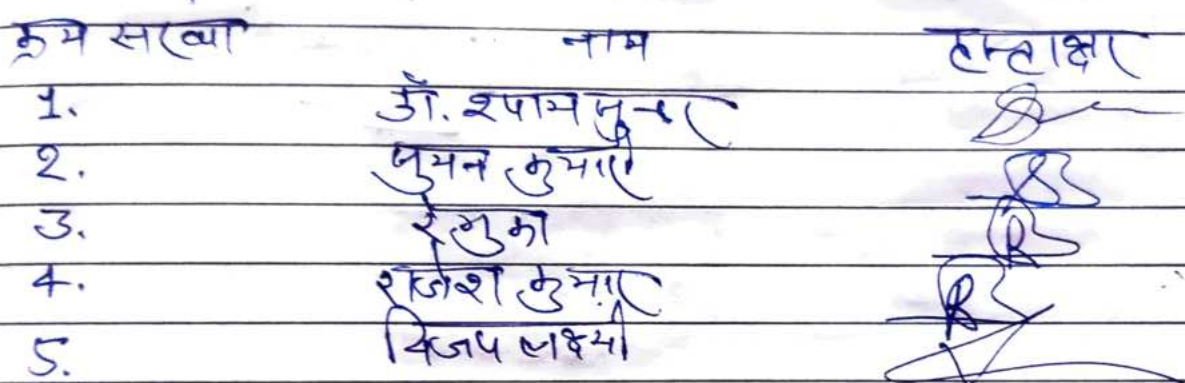 क्रम संख्या नाम हस्ताक्षर
1. डॉ. श्याम सुन्दर
2. सुमन कुमारी
3. रेणुका
4. राजेश कुमार
5. विजय लक्ष्मी